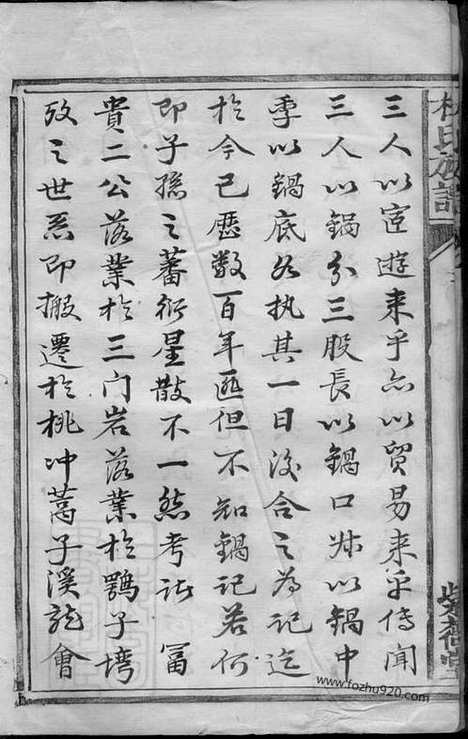 三人以宦遊来乎亦以貿易来乎傳聞
三人以鍋分三股長以鍋口叔以鍋中
季以鍋底各执其一日後合之為記迄
於今已歷数百年匪但不知鍋記若何
即子孫之蕃衍星散不一然考誌冨
貴二公落業於三门岩落業於鶚子塆
攷之世系即搬遷於桃冲蒿子溪龍會
氏族譜
www.fozhu920.com